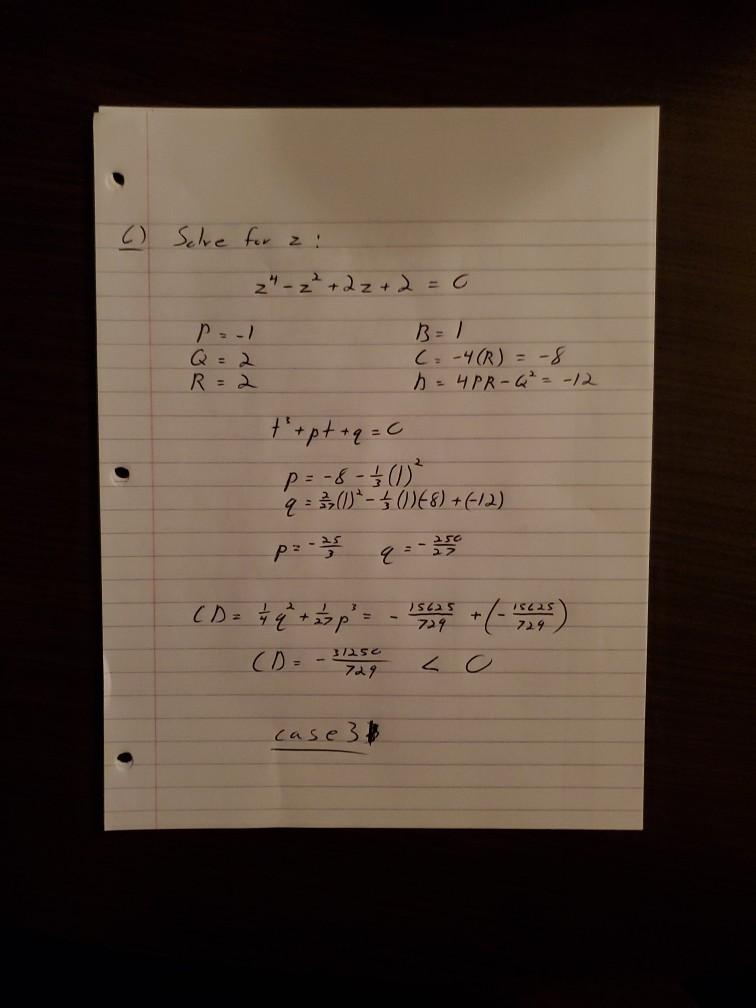 6) Solve for z :
z⁴ - z² + 2z + 2 = 0
P = -1 B = 1
Q = 2 C = -4(R) = -8
R = 2 D = 4PR - Q² = -12
t³ + pt + q = 0
p = -8 - 1/3 (1)²
q = 2/27 (1)² - 1/3 (1)(-8) + (-12)
p = -25/3 q = -250/27
CD = 1/4 q² + 1/27 p³ = - 15625/729 + (- 15625/729)
CD = - 31250/729 < 0
case 3